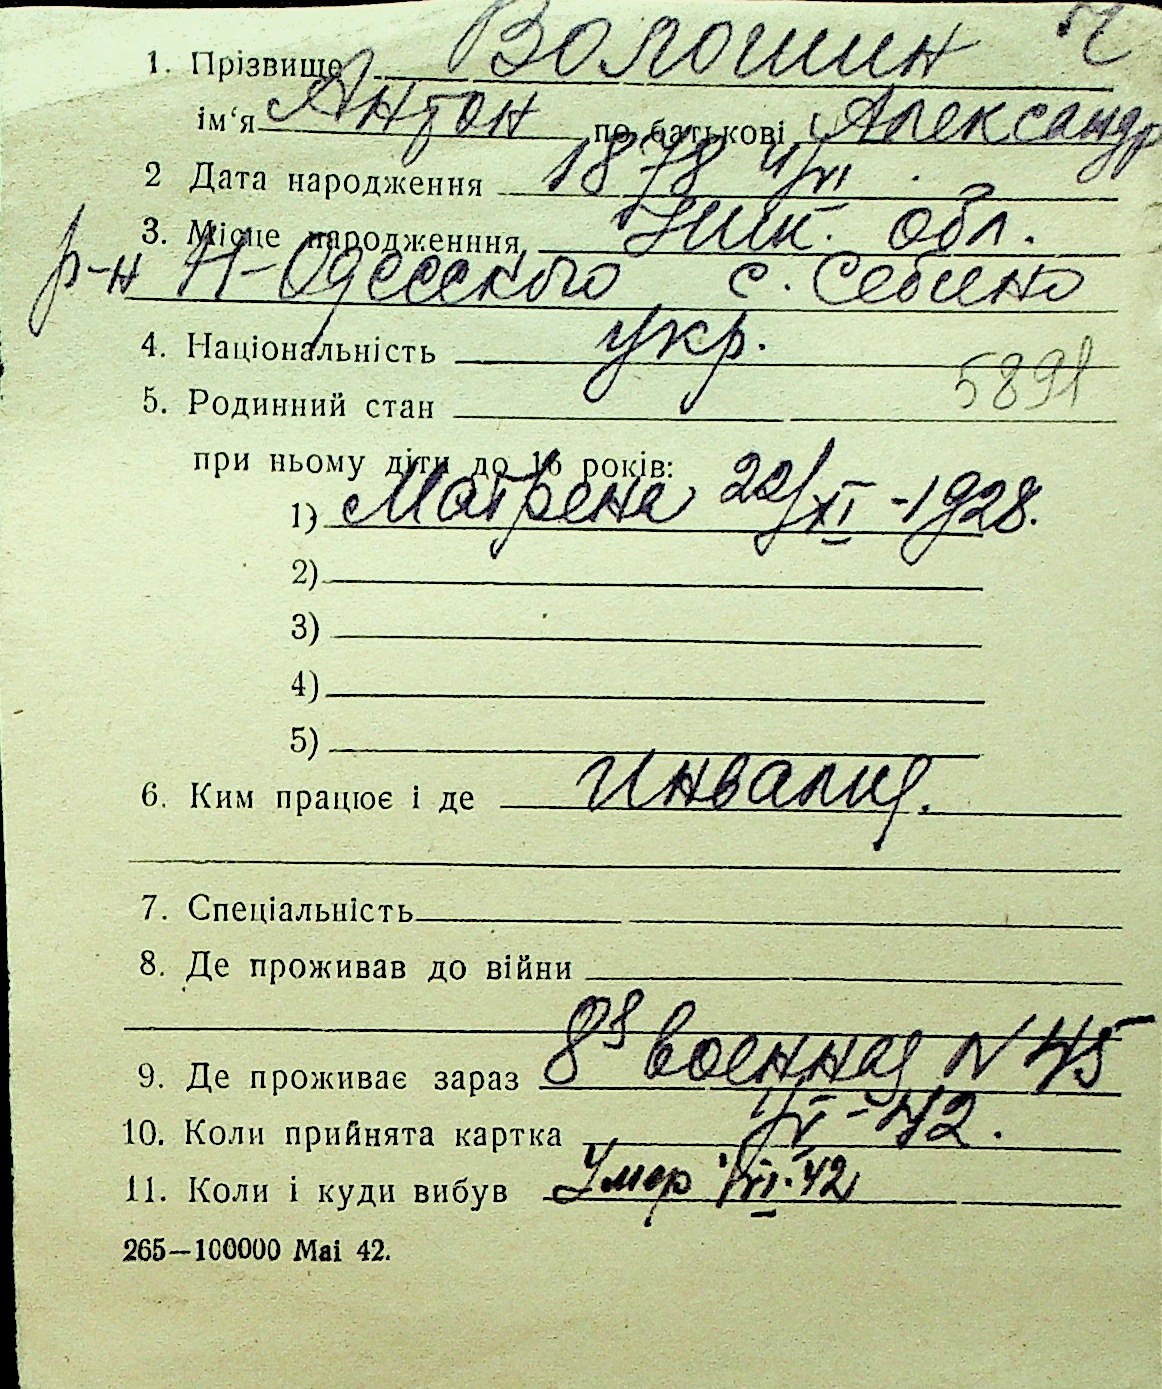 1. Прізвище Волошин
ім‘я Антон по батькові Александр
2 Дата народження 1878 1/VI
3. Місце народженння Ник. обл.
р-н Н-Одесского с. Себино
4. Національність укр.
5. Родинний стан 5891
при ньому діти до 16 років:
1) Матрена 22/XI -1928.
2)
3)
4)
5)
6. Ким працює і де Инвалид.
7. Спеціальність
8. Де проживав до війни
9. Де проживає зараз 8я военная N 45
10. Коли прийнята картка 1/V -42.
11. Коли і куди вибув Умер 1/VI. 42
265—100000 Mai 42.